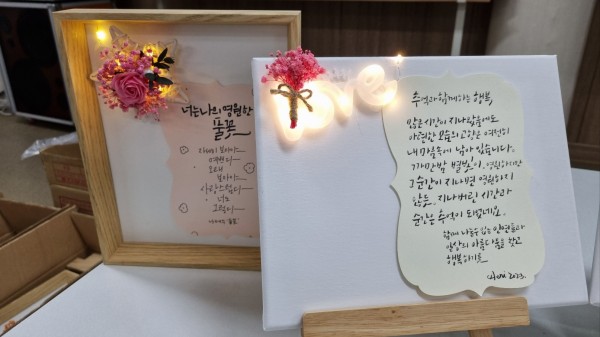 너는 나의 영원한
풀꽃
자세히 보아야
예쁘다
오래
보아야
사랑스럽다
너도
그렇다
love
추억과 함께하는 행복
많은 시간이 지나갔음에도
아련한 모습의 고향은 여전히
내 마음속에 남아 있습니다.
가만한 밤 별빛이, 영원하지만
그 순간이 지나면 영원하지
않듯. 지나버린 시간과
순간은 추억이 되겠네요.
함께 나눌 수 있는 인연들과
일상의 아름다움을 찾고
행복하기를
2023.